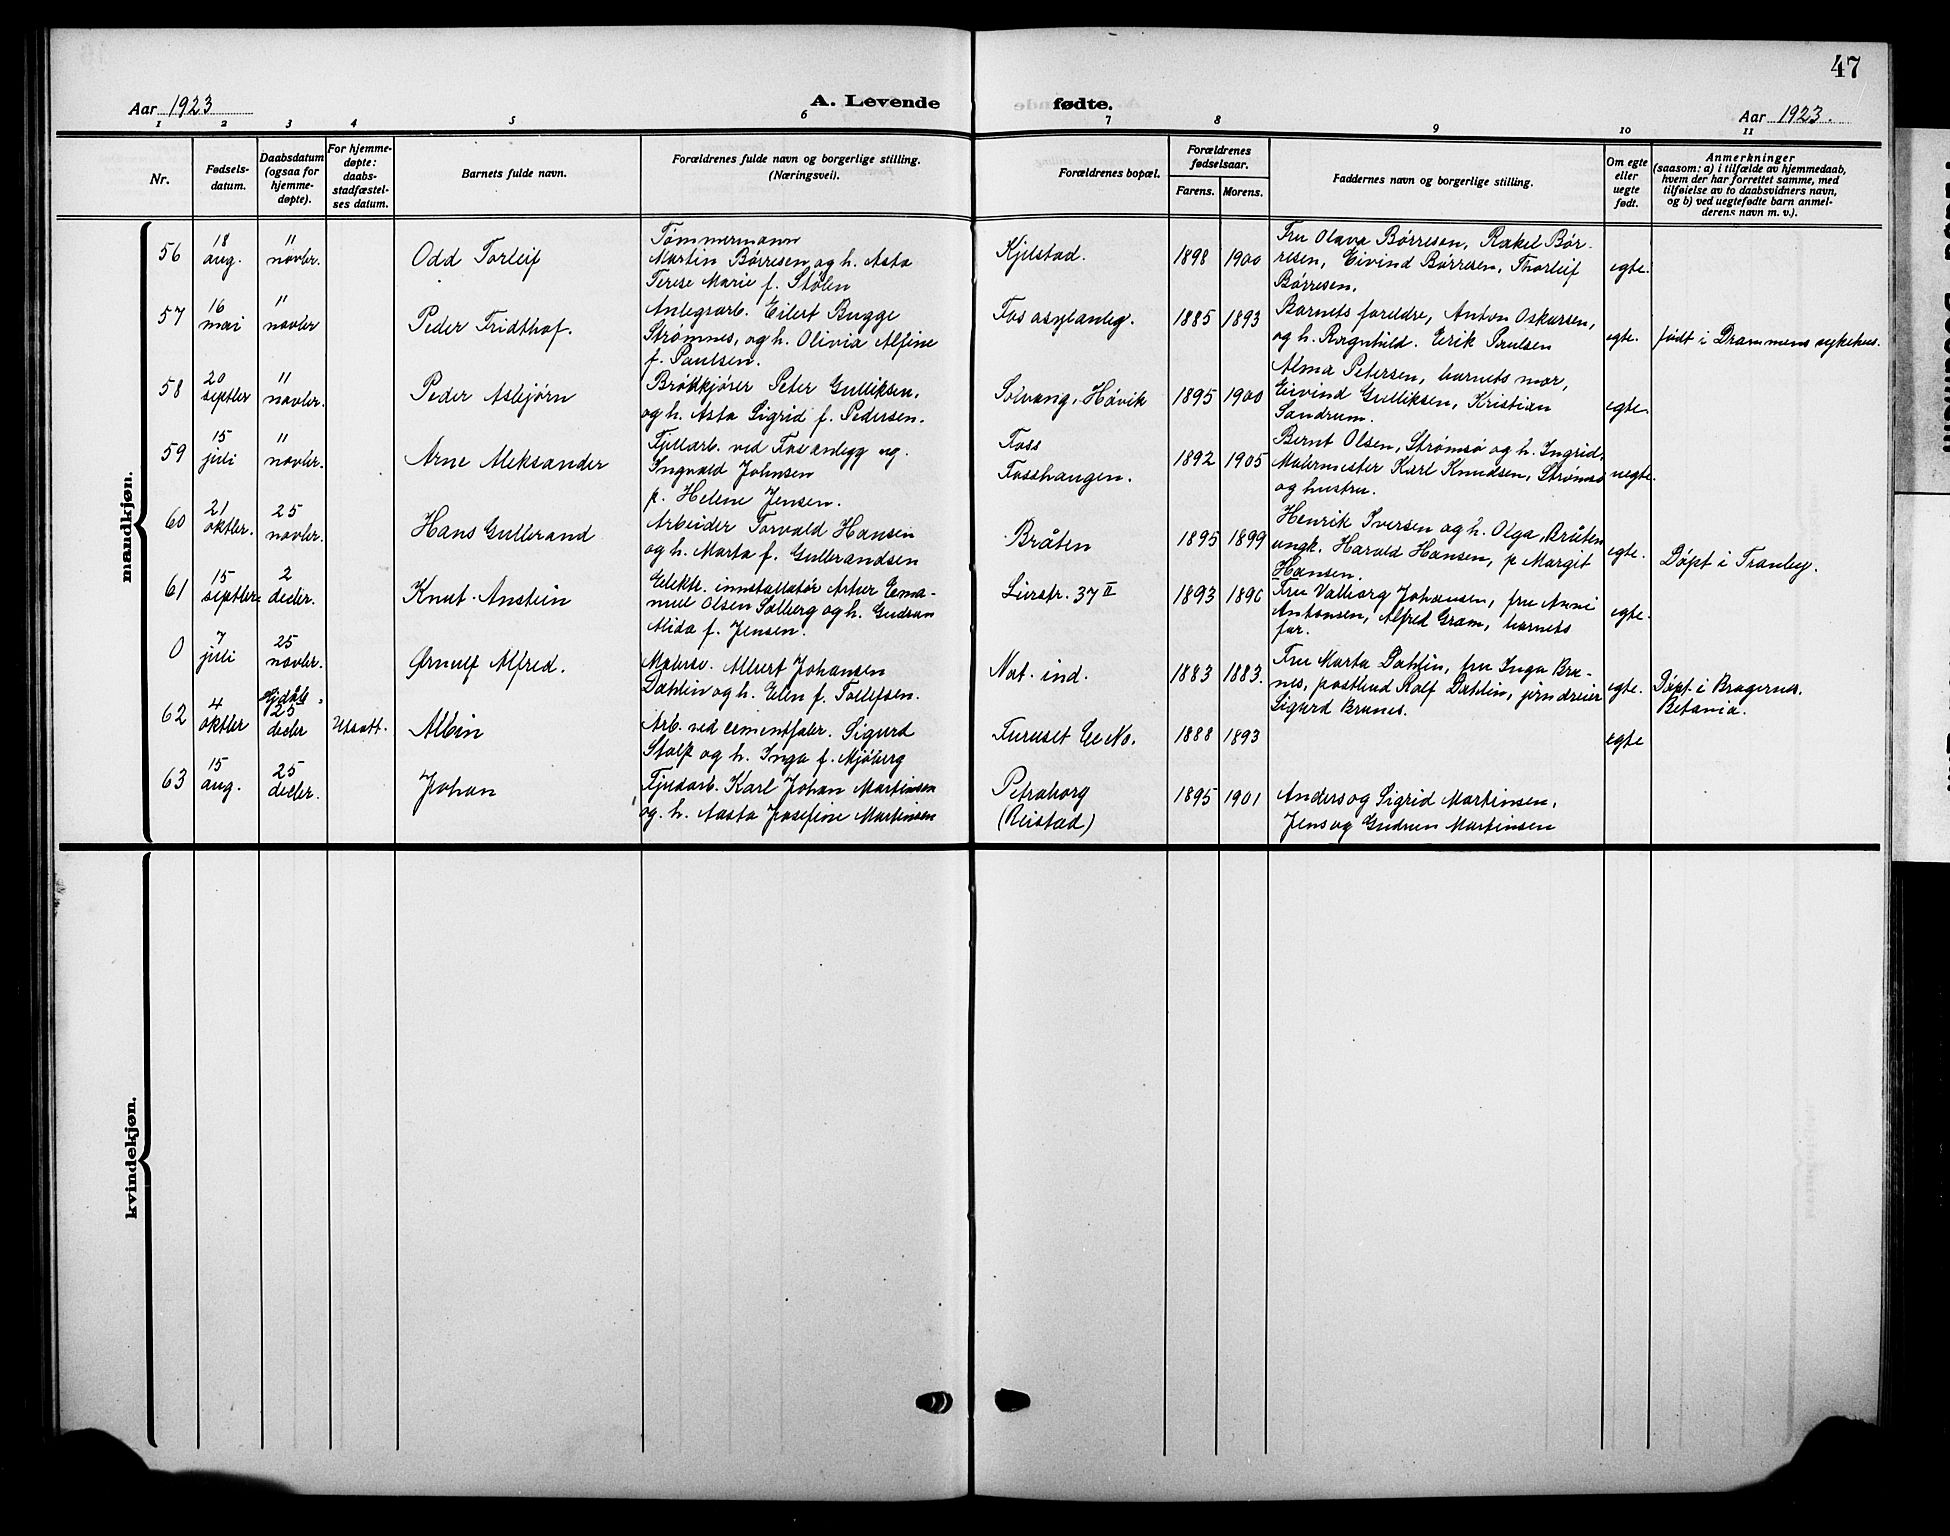 47
Aar 1923
A. Levende fødte.
Aar 1923.
1 2 3 4 5 6 7 8 9 10 11
Nr.
Fødsels-
datum.
Daabsdatum
(ogsaa for
hjemme-
døpte).
For hjemme-
døpte:
daabs-
stadfæstel-
ses datum.
Barnets fulde navn.
Forældrenes fulde navn og borgerlige stilling.
(Næringsvei).
Forældrenes bopæl.
Forældrenes
fødselsaar.
Farens. Morens.
Faddernes navn og borgerlige stilling.
Om egte
eller
uegte
født.
Anmerkninger
(saasom: a) i tilfælde av hjemmedaab,
hvem der har forrettet samme, med
tilføielse av to daabsvidners navn,
og b) ved uegtefødte barn anmel-
derens navn m. v.).
mandkjøn.
56
18
aug.
"
novbr.
Odd Torleif
Tømmermann
Martin Børresen og h. Asta
Terese Marie f. Stølen
Kjelstad.
1898 1900
Fru Olava Børresen, Rakel Bør-
resen, Eivind Børresen, Thorleif
Børresen.
egte.
57
16
mai
"
novbr
Peder Fridthof.
Anlegsarb. Eilert Bugge
Strømnes, og h. Olivia Alfine
f. Paulsen.
Fosasylanleg.
1885 1893
Barnets foreldre, Anton Oskarsen,
og h. Ragnhild. Erik Paulsen
egte.
født i Drammens sykehus.
58
20
septbr
"
novbr.
Peder Asbjørn
Brødkjører Peter Gulliksen,
og h. Asta Sigrid f. Pedersen.
Solvang, Høvik
1895 1900
Alma Petersen, barnets mor,
Eivind Gulliksen, Kristian
Sandrum.
egte.
59
15
juli
"
novbr.
Arne Aleksander
Fjellarb. ved Fosanlegg ug.
Ingvald Johnsen
p. Helene Jensen.
Foss
Fosshaugen.
1892 1905
Bernt Olsen, Strømsø og h. Ingrid,
Malermester Karl Knudsen, Strømsø
og hustru.
uegte.
60
21
oktbr.
25
novbr.
Hans Gulbrand
Arbeider Torvald Hansen
og h. Marta f. Gulbrandsen
Bråten
1895 1899
Henrik Iversen og h. Olga, Bråten
ungk. Harald Hansen, p Margit
Hansen.
egte.
Døpt i Tranby.
61
15
septbr
2
decbr.
Knut Anstein
Elektr. innstallatør Artur Ema-
nuel Olsen Solberg og h. Gudrun
Alida f. Jensen.
Lierstr. 37 II
1893 1896
Fru Valborg Johansen, fru Anni
Antonsen, Alfred Gram, barnets
far.
egte.
0
7
juli
25
novbr.
Ørnulf Alfred.
Malerse. Albert Johansen
Dahlin og h. Elen f. Tollefsen.
Nøt. ind.
1883 1883.
Fru Marta Dahlin, fru Inga Bru-
nes, postbud Rolf Dahlin, jerndreier
Sigurd Brunes.
egte.
Døpt i Bragernes.
Betania.
62
4
oktbr
25
decbr
Utsatt.
Albin
Arb. ved cementfabr. Sigurd
Stolp og h. Inga f. Mjøberg
Furuset
1888 1893
egte
63
15
aug.
25
decbr.
Johan
Karl Johan Martinsen
og. h. Aasta Josefine Martinsen
Petraborg
(Reistad)
1895 1901
Anders og Sigrid Martinsen,
Jens og Gudrun Martinsen
kvindekjøn.